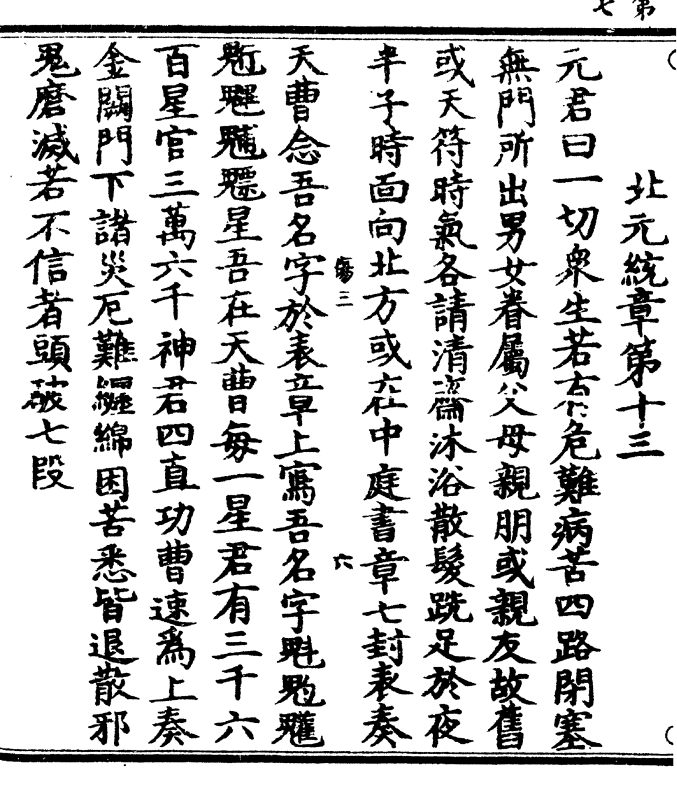 第
七
北元統章第十三
元君曰一切衆生若有危難病苦四路閉塞
無門所出男女眷屬父母親朋或親友故舊
或天符時氣各請清齋沐浴散髮跣足於夜
半子時面向北方或在中庭書章七封表奏
傷三
六
天曹念吾名字於表章上寫吾名字魁䰢䰣
魓星吾在天曹每一星君有三千六
百星官三萬六千神君四直功曹速爲上奏
金闕門下諸災厄難纏綿困苦悉皆退散邪
鬼磨滅若不信者頭破七段